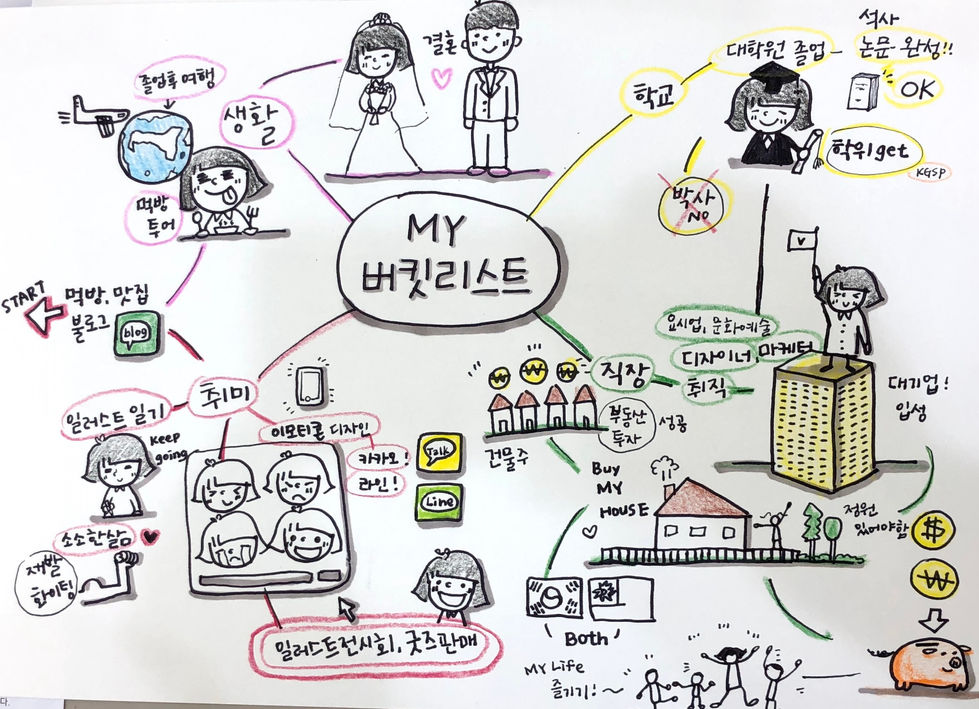 MY
버킷리스트
생활
졸업후 여행
결혼
먹방
투어
START
먹방, 맛집
블로그
blog
취미
일러스트 일기
Keep
going
소소한삶
제발
화이팅
이모티콘 디자인
카카오!
라인!
Talk
Line
일러스트전시회, 굿즈판매
학교
대학원 졸업
석사
논문 완성!!
OK
학위get
KGSP
박사
NO
V
직장
취직
요식업, 문화예술
디자이너, 마케터
대기업!
입성
₩
₩
₩
건물주
부동산
투자
성공
BUY
MY
HOUSE
정원
있어야함
$
₩
Both
MY Life
즐기기!~
다.